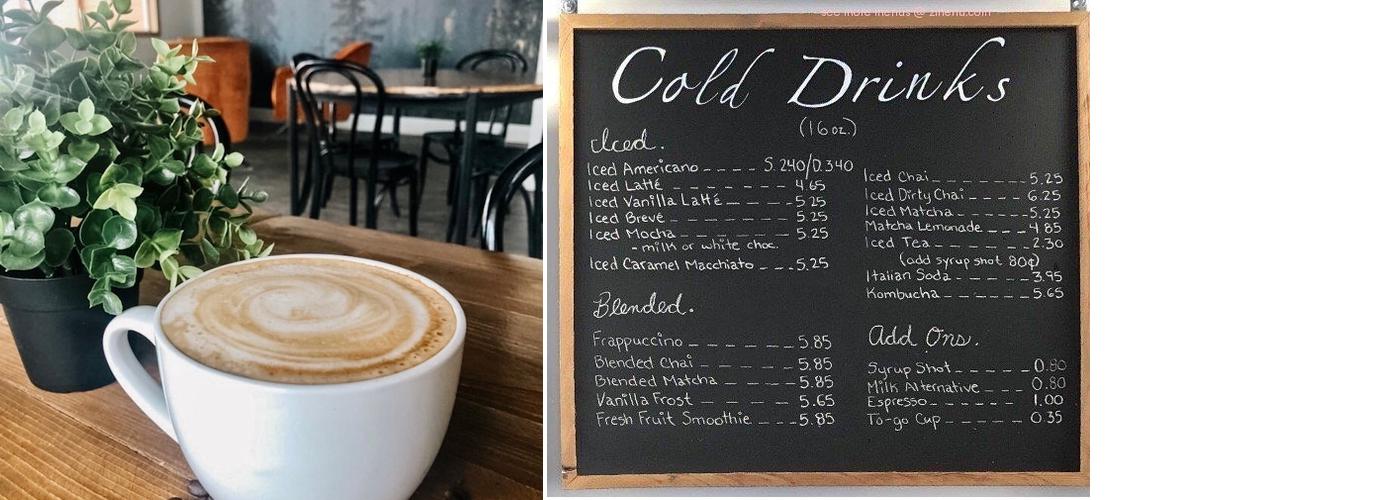 see more menus @ zmenu.com
Cold Drinks
(16 oz.)
Iced.
Iced Americano ---- S. 2.40/D. 3.40
Iced Latté ------- 4.65
Iced Vanilla Latté ---- 5.25
Iced Brevé ------- 5.25
Iced Mocha ------- 5.25
- milk or white choc.
Iced Caramel Macchiato --- 5.25
Blended.
Frappuccino ------ 5.85
Blended Chai ------ 5.85
Blended Matcha ---- 5.85
Vanilla Frost ------ 5.65
Fresh Fruit Smoothie --- 5.85
Iced Chai ------- 5.25
Iced Dirty Chai ---- 6.25
Iced Matcha ------ 5.25
Matcha Lemonade --- 4.85
Iced Tea ------- 2.30
(add syrup shot 80¢)
Italian Soda ------ 3.95
Kombucha ------ 5.65
Add Ons.
Syrup Shot ----- 0.80
Milk Alternative --- 0.80
Espresso ------- 1.00
To-go Cup ----- 0.35